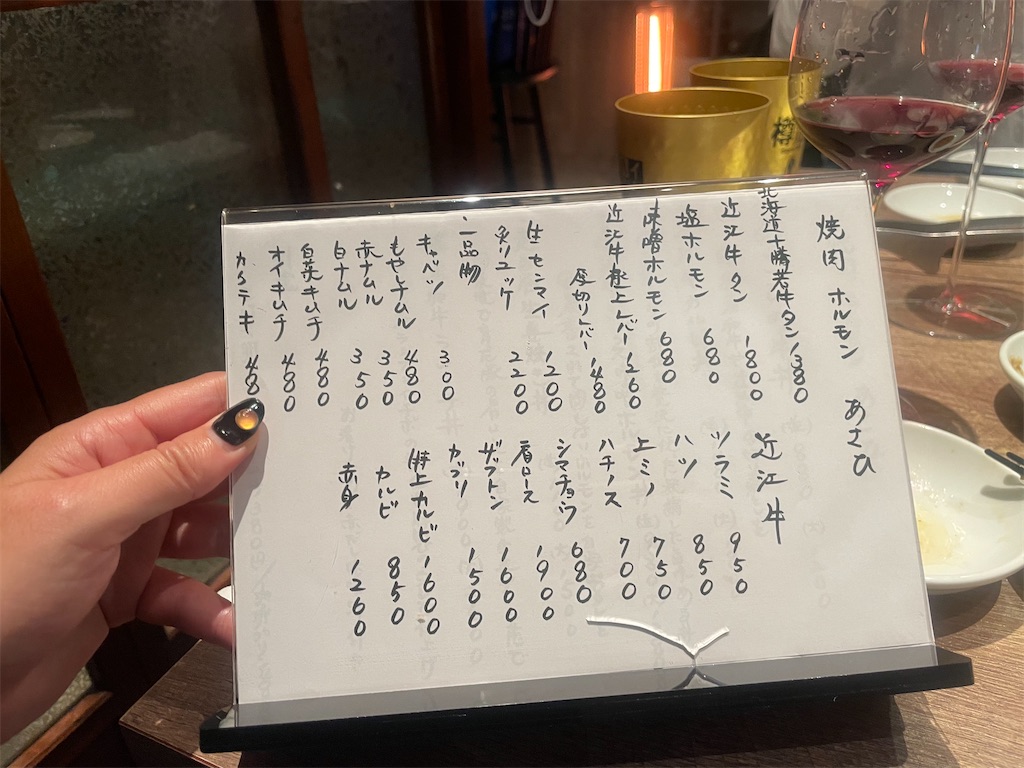 焼肉 ホルモン あさひ
北海道十勝若牛タン 1380
近江牛タン 1800
塩ホルモン 680
味噌ホルモン 680
近江牛極上レバー 1260
厚切りレバー 1480
生センマイ 1200
炙りユッケ 2200
一品物
キャベツ 300
もやしナムル 480
赤ナムル 350
白ナムル 350
白菜キムチ 480
オイキムチ 480
カクテキ 480
近江牛
ツラミ 950
ハツ 850
上ミノ 750
ハチノス 700
シマチョウ 680
肩ロース 1900
ザブトン 1600
カッパ 1500
特上カルビ 1600
カルビ 850
赤身 1260
樽